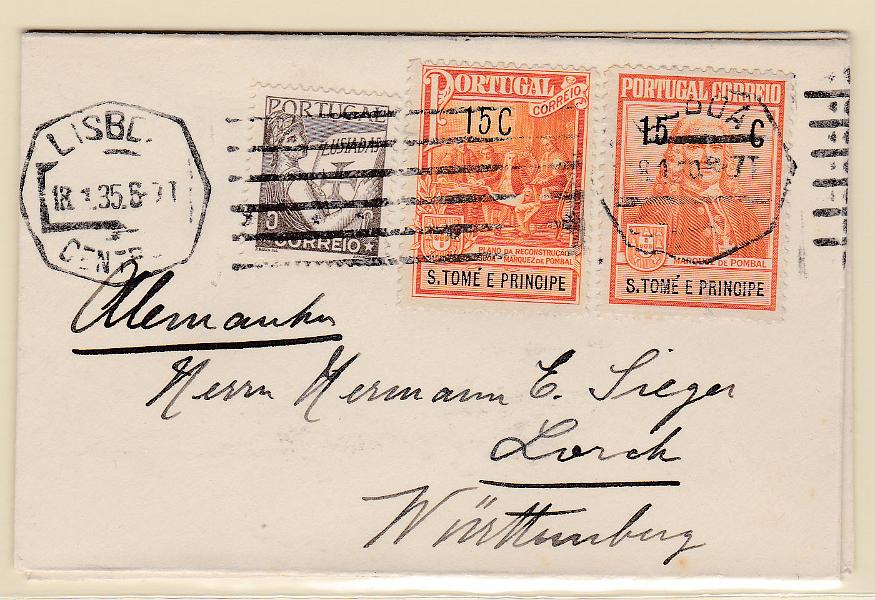 LISBO
18.1.35.6-7T
CENT
PORTUGAL
LUSIADAS
CORREIO
PORTUGAL
CORREIO
15C
PLANO DA RECONSTRUÇÃO
MARQUEZ DE POMBAL
S.TOMÉ E PRINCIPE
PORTUGAL CORREIO
15 C
MARQUEZ DE POMBAL
S.TOMÉ E PRINCIPE
Alemanha
Herrn Hermann E. Sieger
Lorch
Württemberg